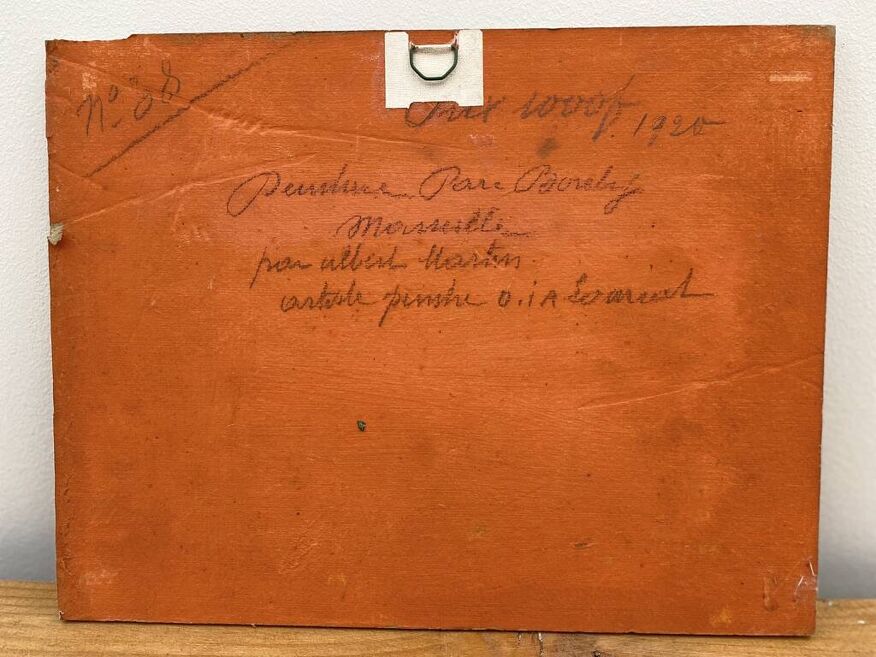 No. 88
Prix 1000f. 1920
Peinture Parc Borely
Marseille
par albert Martin
artiste peintre O.I A